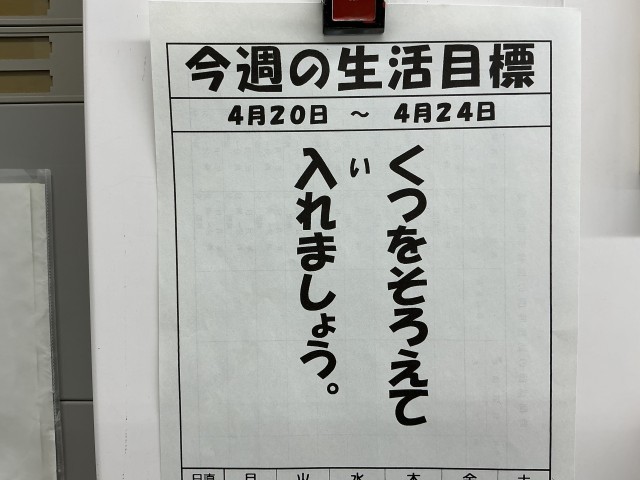 今週の生活目標
4月20日 ~ 4月24日
くつをそろえて
入れましょう。
い
日直 月 火 水 木 金 土